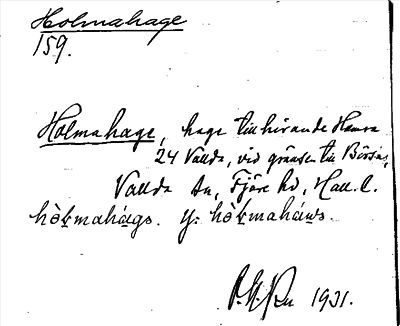 Holmahage
159.
Holmahage, hage tillhörande Hamra
24 Vallda, vid gränsen till Börsås,
Vallda sn, Fjäre hd, Hall. l.
1931.